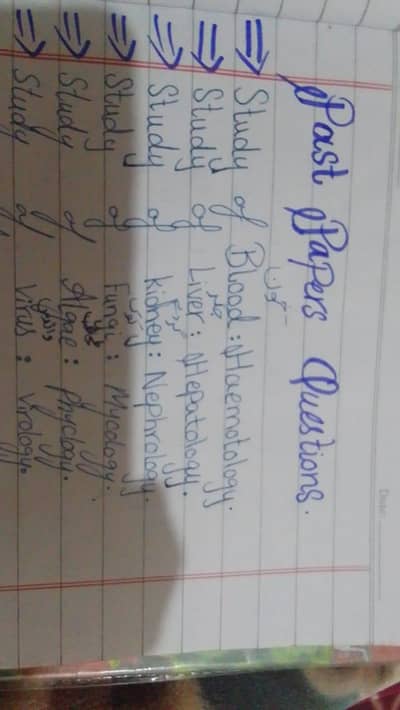 Past Papers Questions.
⇒ Study of Blood : Haemotology.
⇒ Study of Liver : Hepatology.
⇒ Study of kidney : Nephrology.
⇒ Study of Fungi : Mycology.
⇒ Study of Algae : Phycology.
⇒ Study of Virus : Virology.